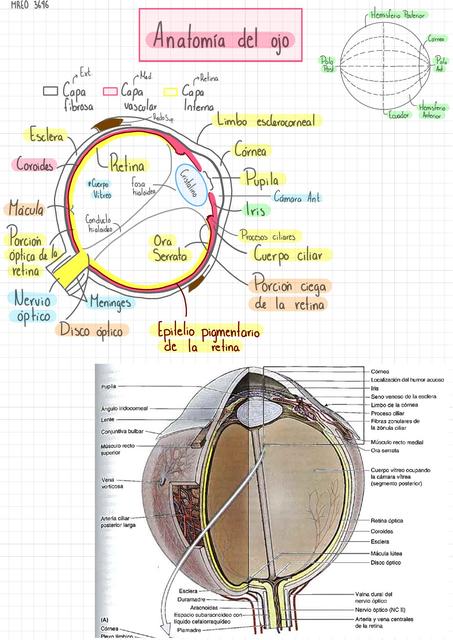 MREO 3696
Anatomía del ojo
Hemisferio Posterior
Córnea
Polo Post
Polo Ant.
Hemisferio Anterior
Ecuador
Ext.
Capa fibrosa
Med
Capa vascular
Retina
Capa Interna
Esclera
Coroides
Mácula
Porción óptica de la retina
Nervio óptico
Meninges
Disco óptico
Retina
Cuerpo Vítreo
Fosa hialoidea
Conducto hialoideo
Cristalino
Ora Serrata
Epitelio pigmentario de la retina
Limbo esclerocorneal
Córnea
Pupila
Cámara Ant.
Iris
Procesos ciliares
Cuerpo ciliar
Porción ciega de la retina
Pupila
Ángulo iridocorneal
Lente
Conjuntiva bulbar
Músculo recto superior
Vena vorticosa
Arteria ciliar posterior larga
Córnea
Localización del humor acuoso
Iris
Seno venoso de la esclera
Limbo de la córnea
Proceso ciliar
Fibras zonulares de la zónula ciliar
Músculo recto medial
Ora serrata
Cuerpo vítreo ocupando la cámara vítrea (segmento posterior)
Retina óptica
Coroides
Esclera
Mácula lútea
Disco óptico
Esclera
Duramadre
Aracnoides
Espacio subaracnoideo con líquido cefalorraquídeo
Piamadre
Vaina dural del nervio óptico
Nervio óptico (NC II)
Arteria y vena centrales de la retina
(A)
Córnea